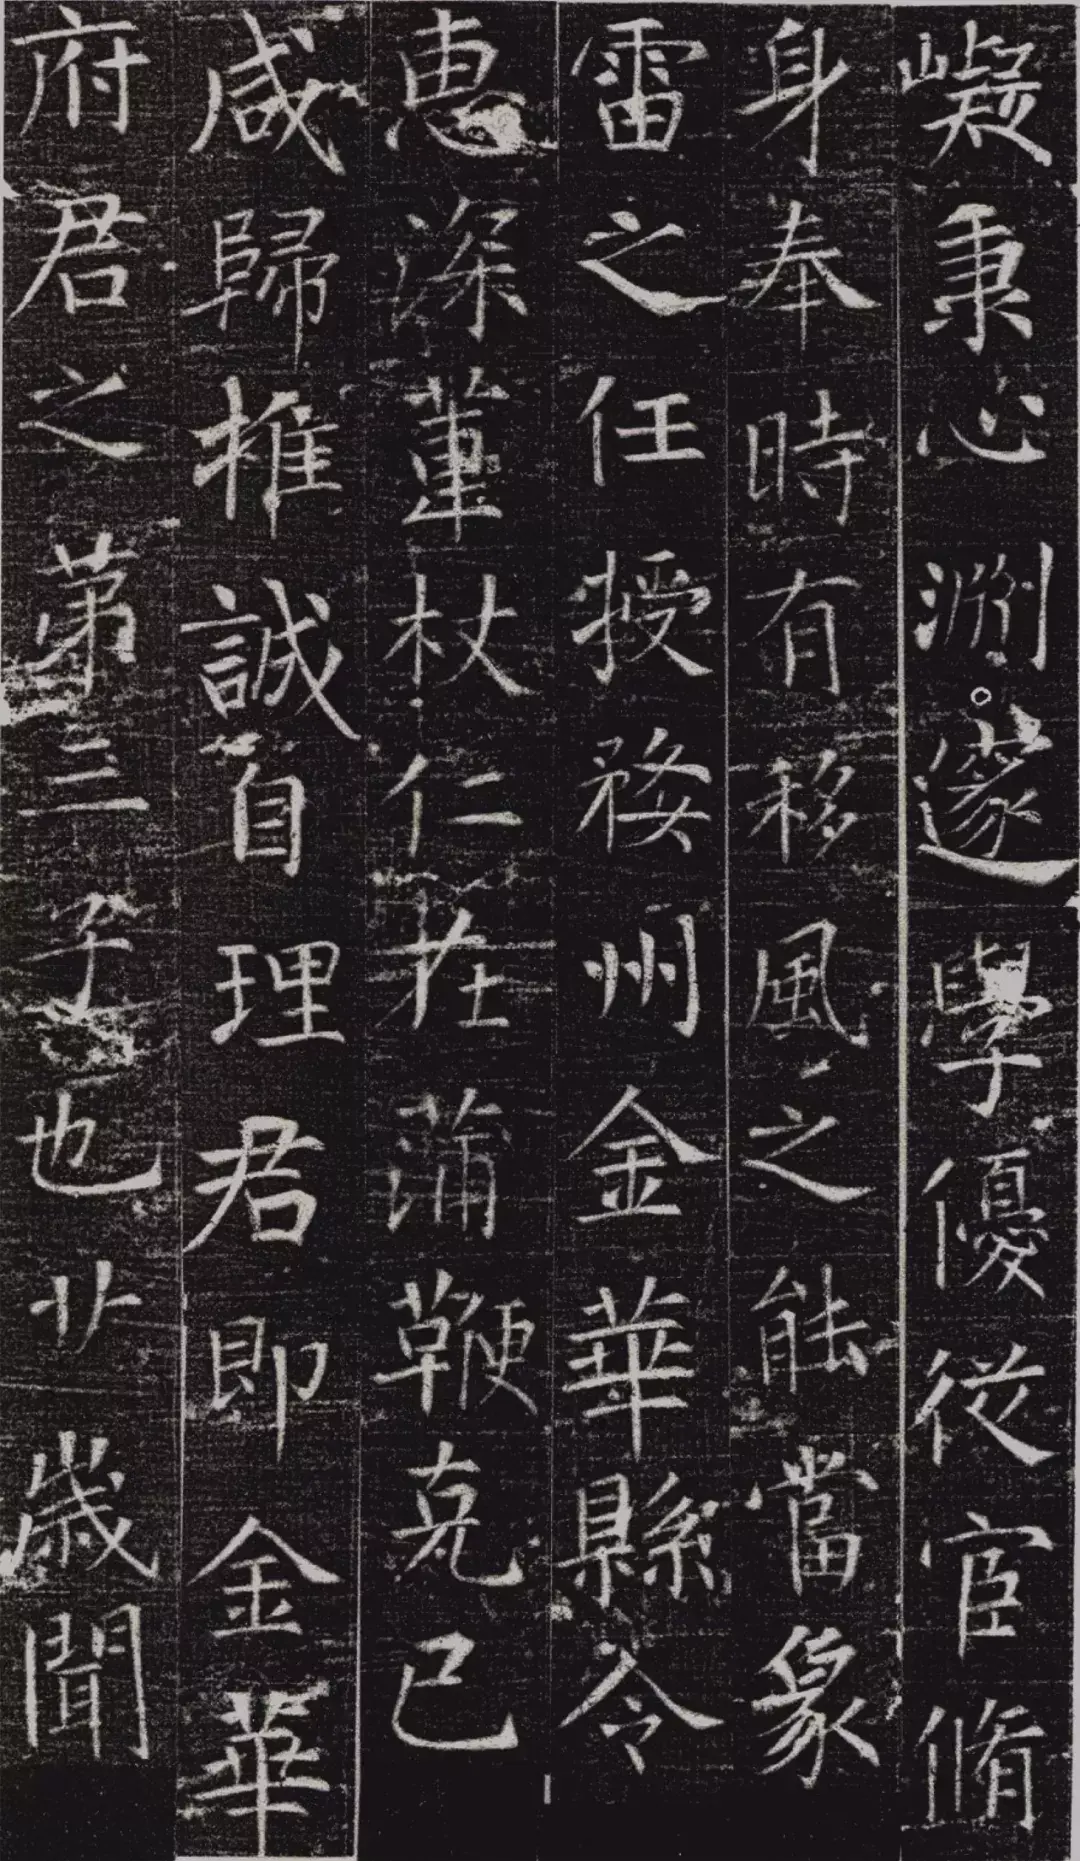 嶷秉心淵邃學優從宦脩
身奉時有移風之能當象
雷之任授婺州金華縣令
惠深董杖仁在蒲鞭克己
咸歸推誠自理君即金華
府君之第三子也廿歲聞